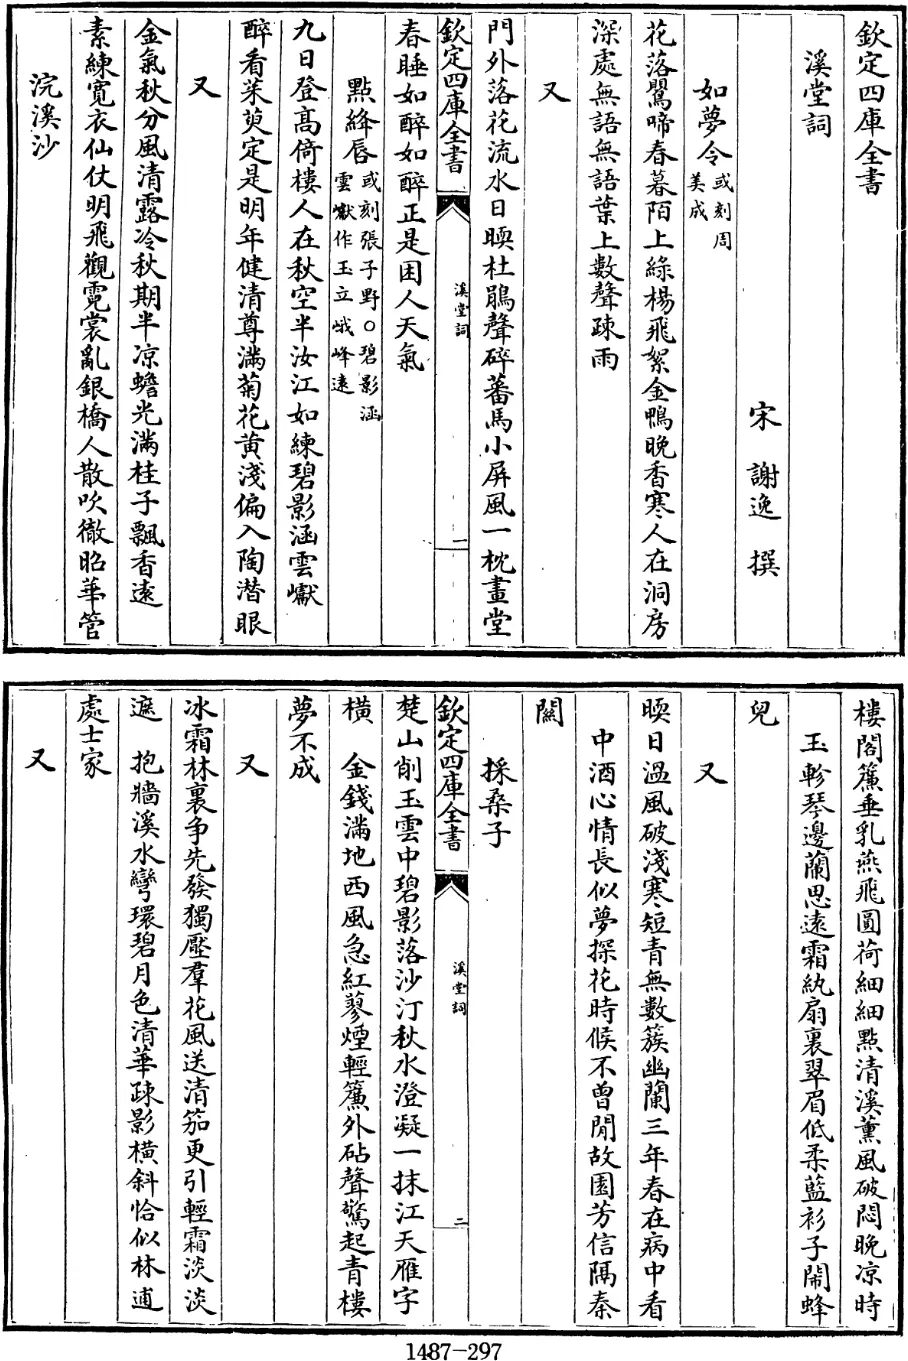 欽定四庫全書
溪堂詞
宋 謝逸 撰
如夢令或刻周美成
花落鸎啼春暮陌上綠楊飛絮金鴨晚香寒人在洞房
深處無語無語葉上數聲疎雨
又
門外落花流水日暖杜鵑聲碎蕃馬小屏風一枕畫堂
欽定四庫全書 溪堂詞 一
春睡如醉如醉正是困人天氣
點絳唇或刻張子野○碧影涵雲巘作玉立峨峰遠
九日登高倚樓人在秋空半汝江如練碧影涵雲巘
醉看茱萸定是明年健清尊滿菊花黃淺偏入陶潛眼
又
金氣秋分風清露冷秋期半凉蟾光滿桂子飄香遠
素練寛衣仙仗明飛觀霓裳亂銀橋人散吹徹昭華管
浣溪沙
樓閣簾垂乳燕飛圓荷細細點清溪薰風破悶晚凉時
玉軫琴邊蘭思遠霜紈扇裏翠眉低柔藍衫子鬧蜂
兒
又
暖日溫風破淺寒短青無數簇幽蘭三年春在病中看
中酒心情長似夢探花時候不曾閒故園芳信隔秦
關
採桑子
欽定四庫全書 溪堂詞 二
楚山削玉雲中碧影落沙汀秋水澄凝一抹江天雁字
橫 金錢滿地西風急紅蓼煙輕簾外砧聲驚起青樓
夢不成
又
冰霜林裏争先發獨壓羣花風送清笳更引輕霜淡淡
遮 抱牆溪水彎環碧月色清華疎影橫斜恰似林逋
處士家
又
1487-297